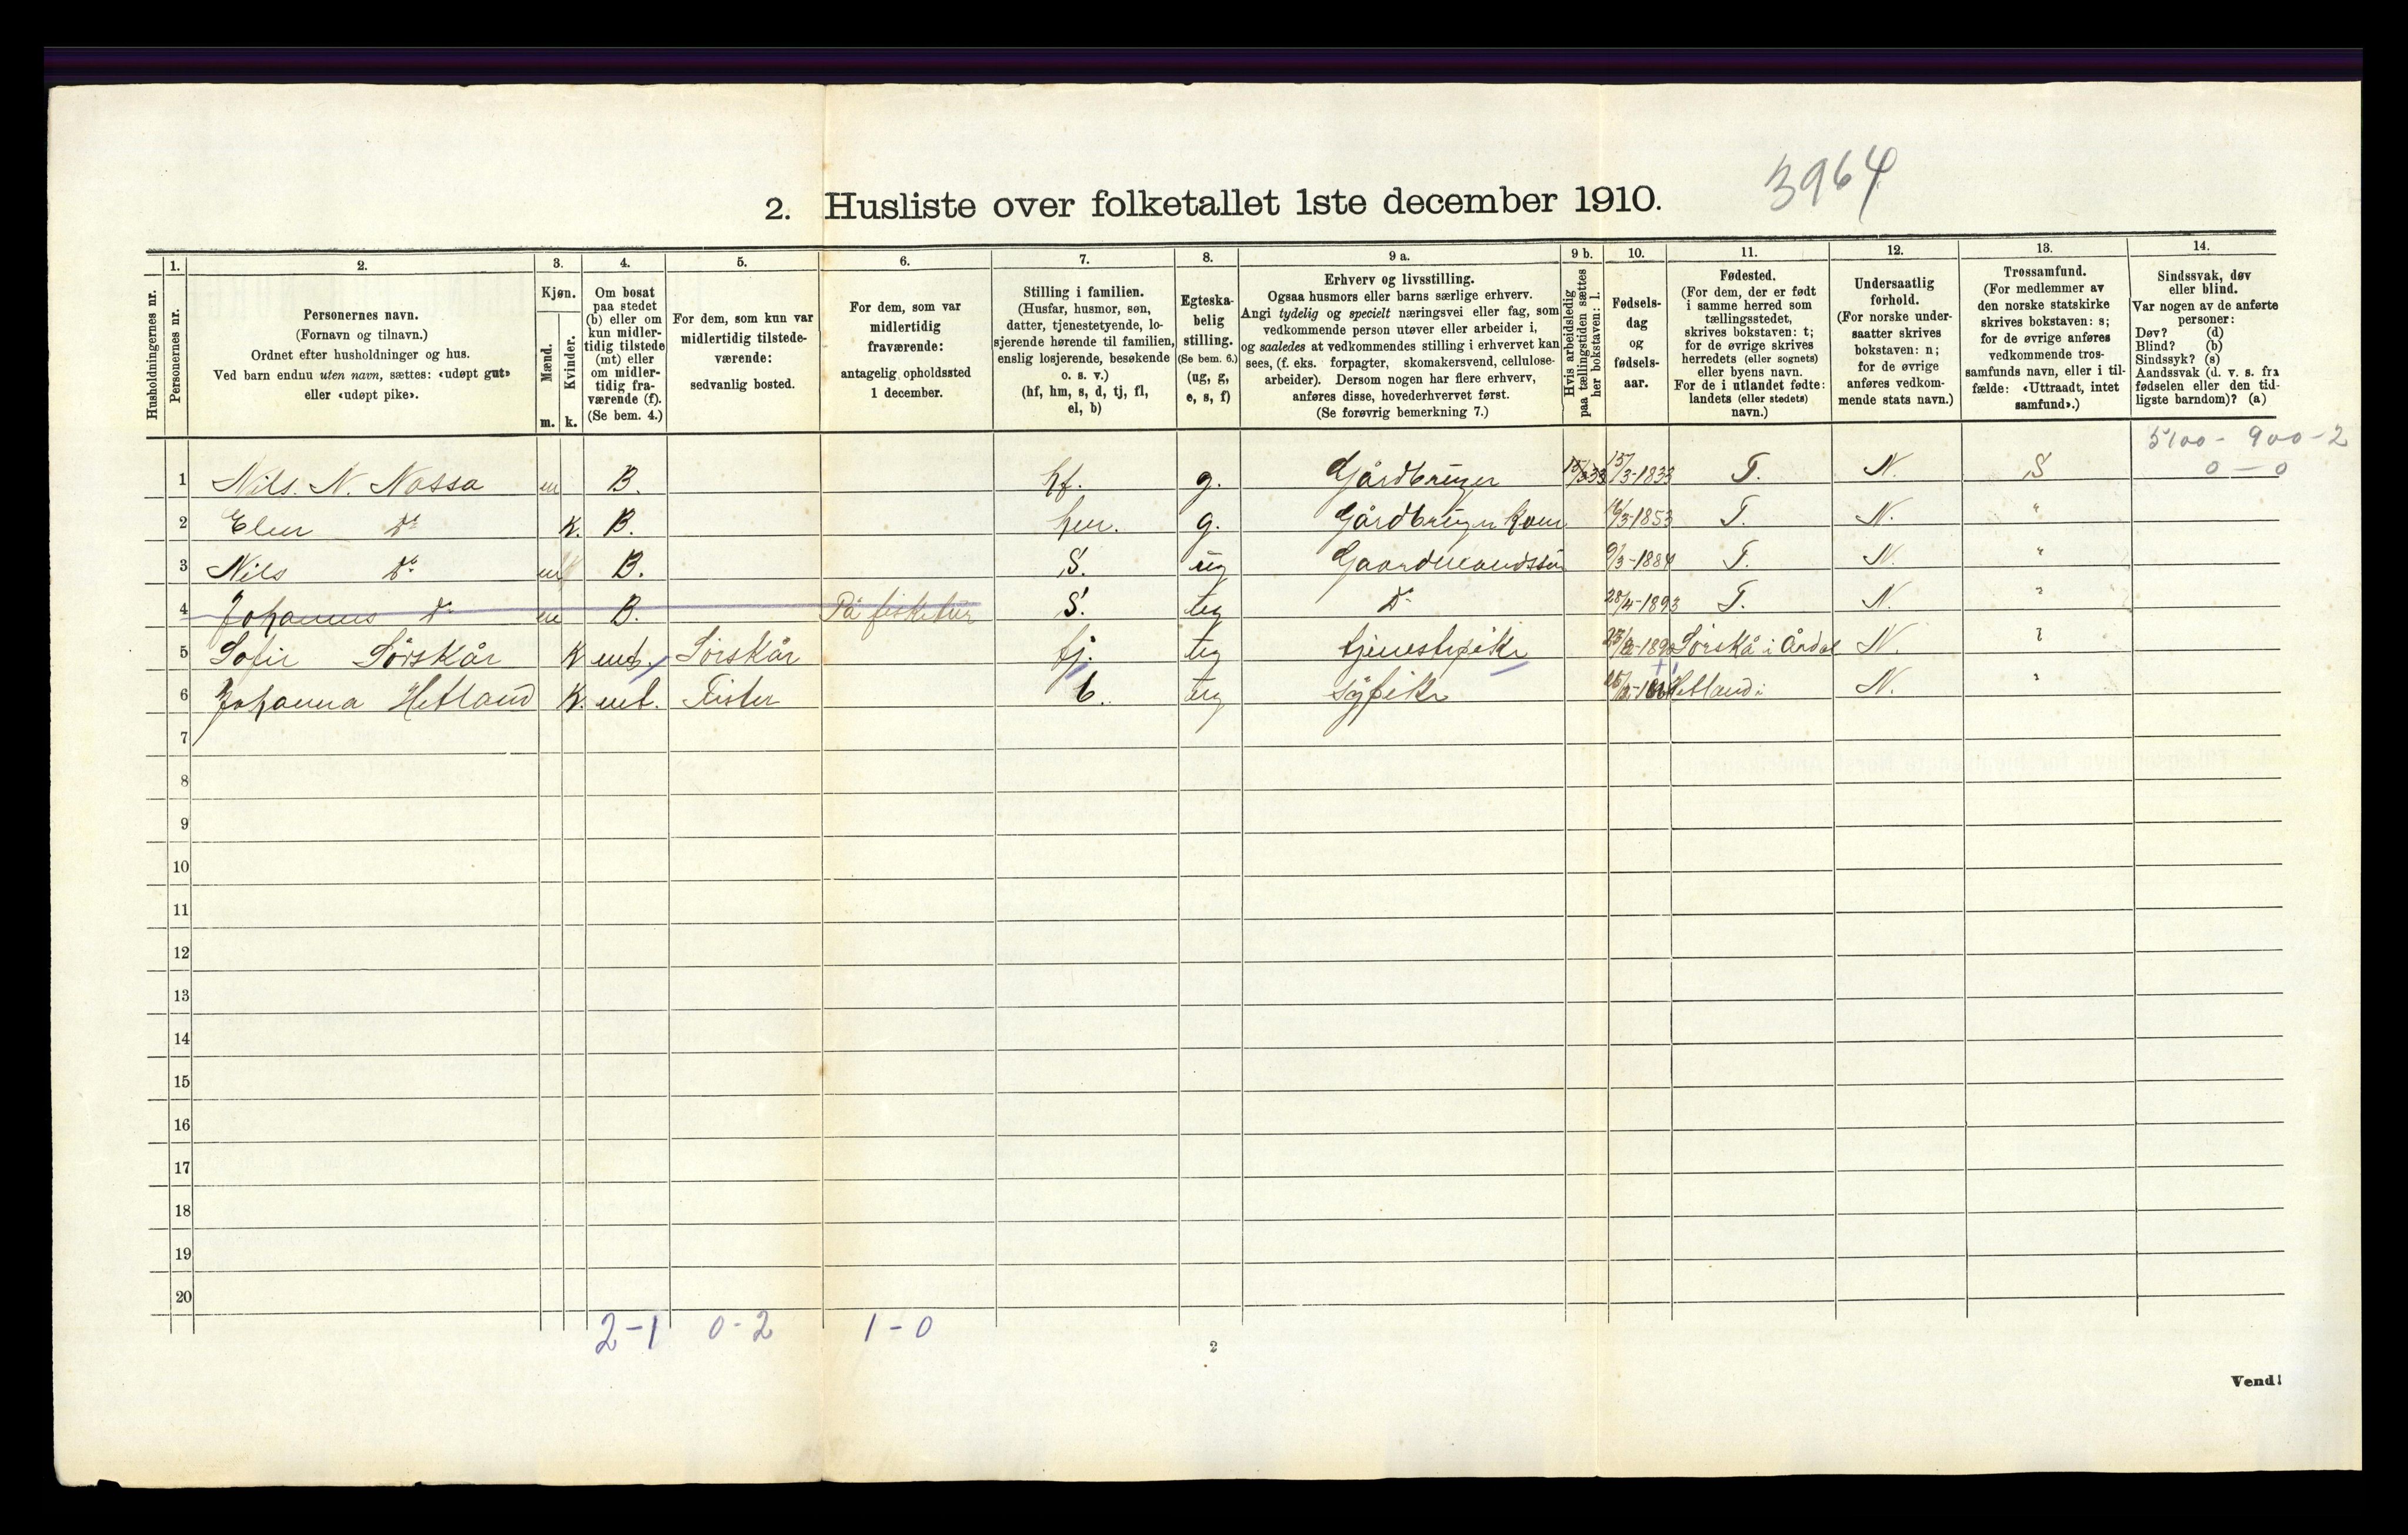 3964
2. Husliste over folketallet 1ste december 1910.
Husholdningernes nr.
1.
Personernes nr.
2.
Personernes navn.
(Fornavn og tilnavn.)
Ordnet efter husholdninger og hus.
Ved barn endnu uten navn, sættes: «udøpt gut»
eller «udøpt pike».
3.
Kjøn.
Mænd.
Kvinder.
m. k.
4.
Om bosat
paa stedet
(b) eller om
kun midler-
tidig tilstede
(mt) eller
om midler-
tidig fra-
værende (f).
(Se bem. 4.)
5.
For dem, som kun var
midlertidig tilstede-
værende:
sedvanlig bosted.
6.
For dem, som var
midlertidig
fraværende:
antagelig opholdssted
1 december.
7.
Stilling i familien.
(Husfar, husmor, søn,
datter, tjenestetyende, lo-
sjerende hørende til familien,
enslig losjerende, besøkende
o. s. v.)
(hf, hm, s, d, tj, fl,
el, b)
8.
Egteska-
belig
stilling.
(Se bem. 6.)
(ug, g,
e, s, f)
9 a.
Erhverv og livsstilling.
Ogsaa husmors eller barns særlige erhverv.
Angi tydelig og specielt næringsvei eller fag, som
vedkommende person utøver eller arbeider i,
og saaledes at vedkommendes stilling i erhvervet kan
sees, (f. eks. forpagter, skomakersvend, cellulose-
arbeider). Dersom nogen har flere erhverv,
anføres disse, hovederhvervet først.
(Se forøvrig bemerkning 7.)
9 b.
Hvis arbeidsledig
paa tællingstiden sættes
her bokstaven: l.
10.
Fødsels-
dag
og
fødsels-
aar.
11.
Fødested.
(For dem, der er født
i samme herred som
tællingsstedet,
skrives bokstaven: t;
for de øvrige skrives
herredets (eller sognets)
eller byens navn.
For de i utlandet fødte:
landets (eller stedets)
navn.)
12.
Undersaatlig
forhold.
(For norske under-
saatter skrives
bokstaven: n;
for de øvrige
anføres vedkom-
mende stats navn.)
13.
Trossamfund.
(For medlemmer av
den norske statskirke
skrives bokstaven: s;
for de øvrige anføres
vedkommende tros-
samfunds navn, eller i til-
fælde: «Uttraadt, intet
samfund».)
14.
Sindssvak, døv
eller blind.
Var nogen av de anførte
personer:
Døv? (d)
Blind? (b)
Sindssyk? (s)
Aandssvak (d. v. s. fra
fødselen eller den tid-
ligste barndom)? (a)
5100 - 900 - 2
0 - 0
1 Nils. N. Nossa m B. hf. g. Gårdbruger 15/3-1833 T. N. S
2 Elen Do K. B. hm. g. Gårdbruger Kone 16/3-1853 T. N. "
3 Nils Do m B. S. ug Gaardmandssön 9/3-1884 T. N. "
4 Johannes Do m B. På fisketur S. ug Do 28/4-1893 T. N. "
5 Sofie Sörskår K mt. Sörskår tj. ug tjenestepike Sörskå i Årdal N. "
6 Johanna Hetland K. mt. Fister b. ug Sypike Hetland i N. "
7
8
9
10
11
12
13
14
15
16
17
18
19
20
2-1 0-2 1-0
2
Vend!